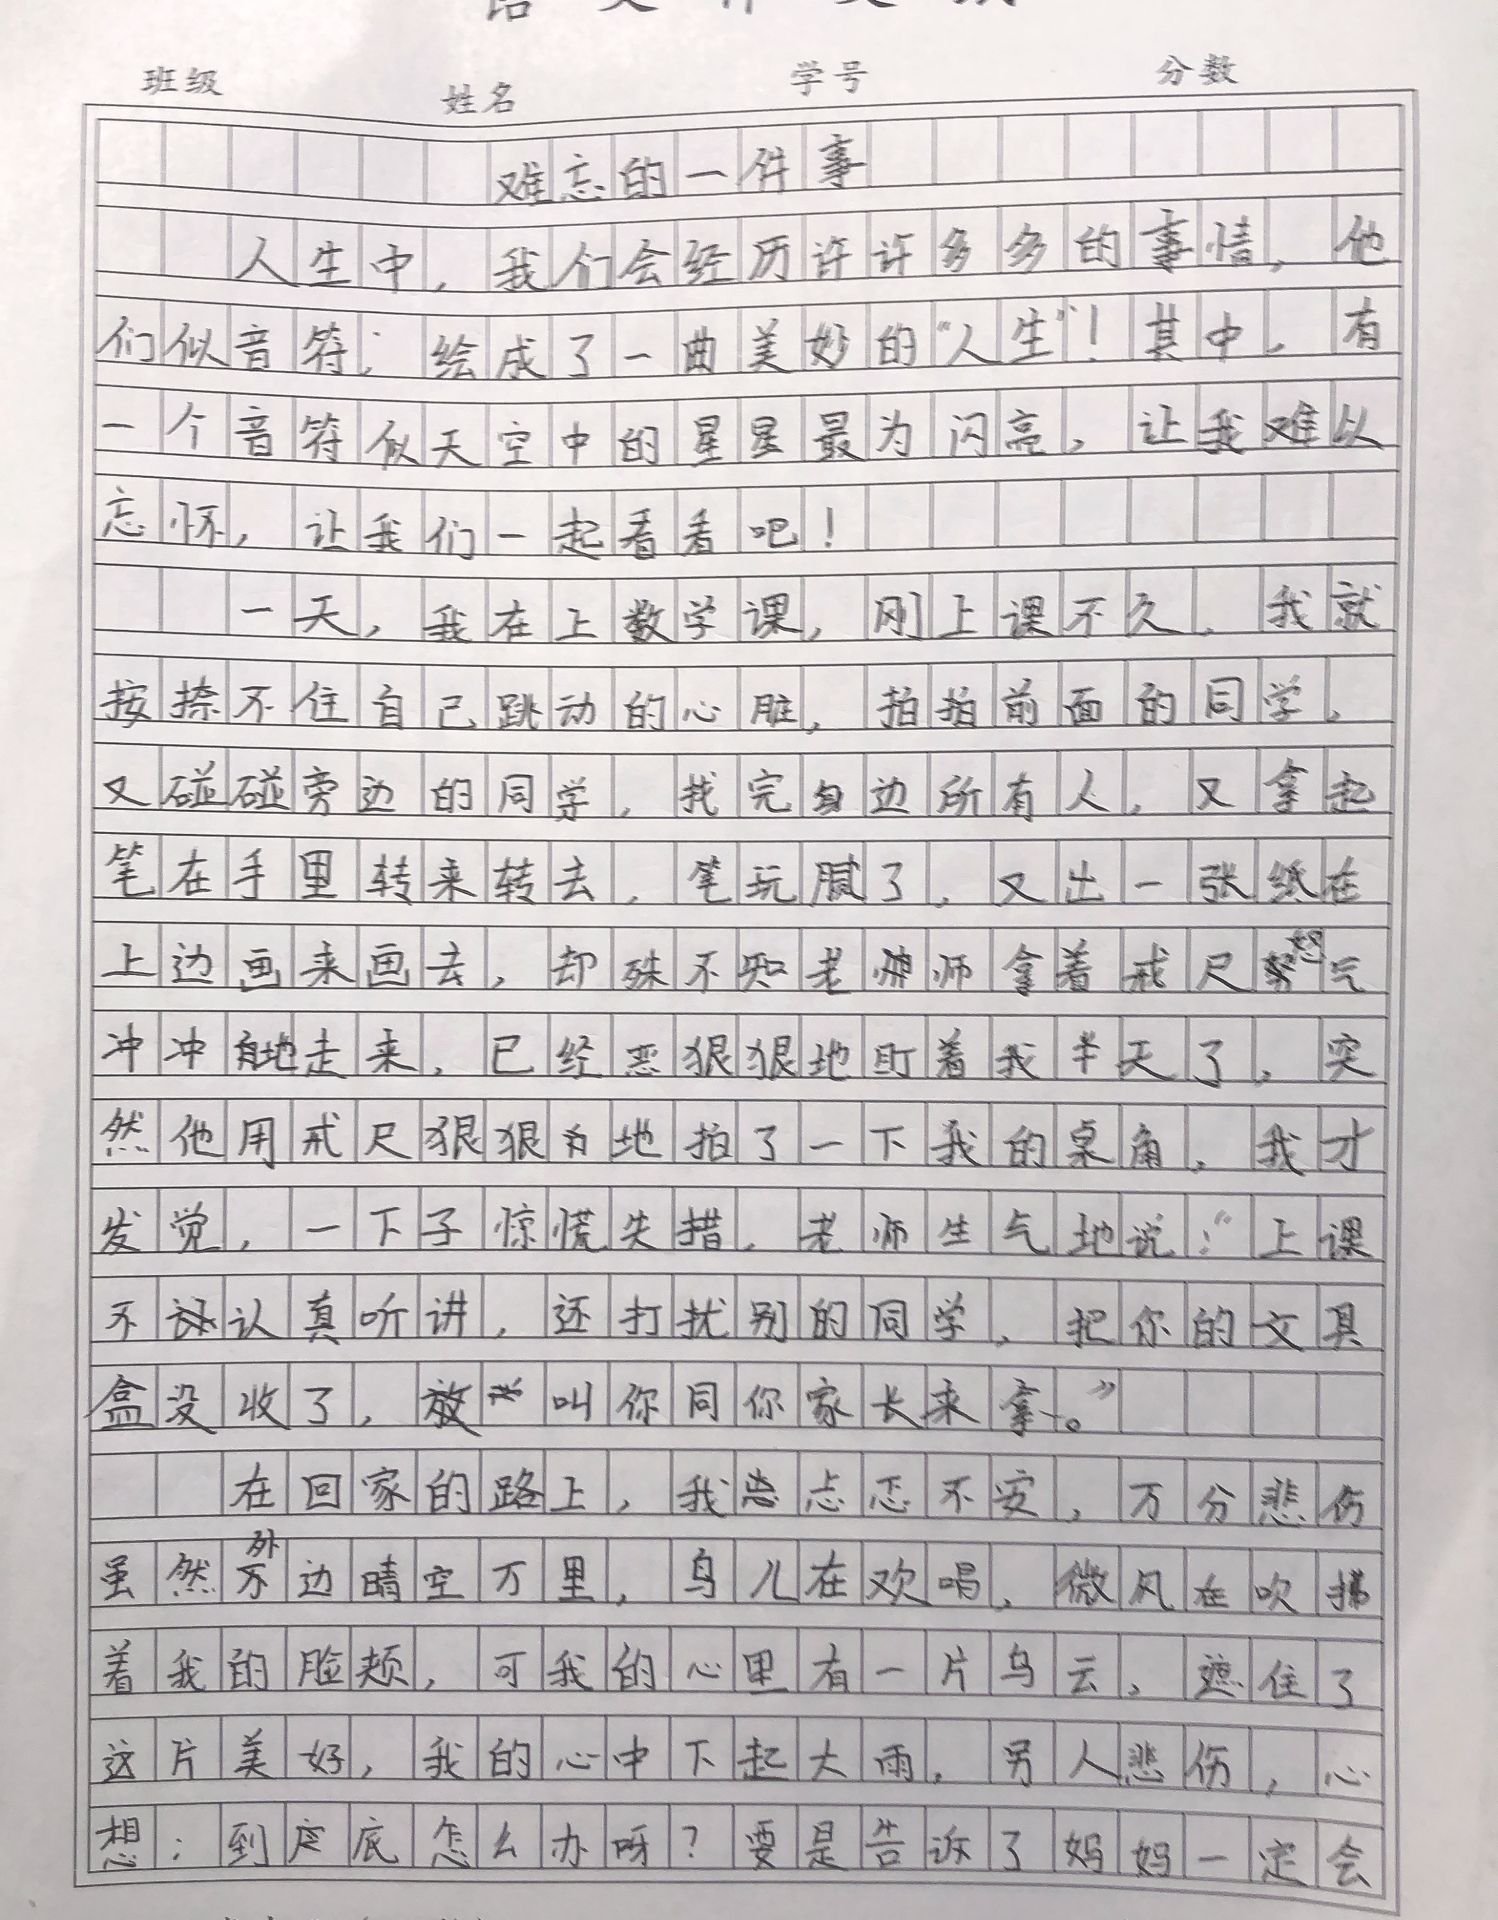 班级 姓名 学号 分数
难忘的一件事
人生中，我们会经历许许多多的事情，他
们似音符，绘成了一曲美妙的“人生”！其中，有
一个音符似天空中的星星最为闪亮，让我难以
忘怀，让我们一起看看吧！
一天，我在上数学课，刚上课不久，我就
按捺不住自己跳动的心脏，拍拍前面的同学，
又碰碰旁边的同学，找完身边所有人，又拿起
笔在手里转来转去，笔玩腻了，又出一张纸在
上边画来画去，却殊不知老师拿着戒尺怒气
冲冲地走来，已经恶狠狠地盯着我半天了，突
然他用戒尺狠狠地拍了一下我的桌角，我才
发觉，一下子惊慌失措，老师生气地说：“上课
不认真听讲，还打扰别的同学，把你的文具
盒没收了，放学叫你同你家长来拿。”
在回家的路上，我忐忑不安，万分悲伤
虽然外边晴空万里，鸟儿在欢唱，微风在吹拂
着我的脸颊，可我的心里有一片乌云，遮住了
这片美好，我的心中下起大雨，另人悲伤，心
想：到底怎么办呀？要是告诉了妈妈一定会